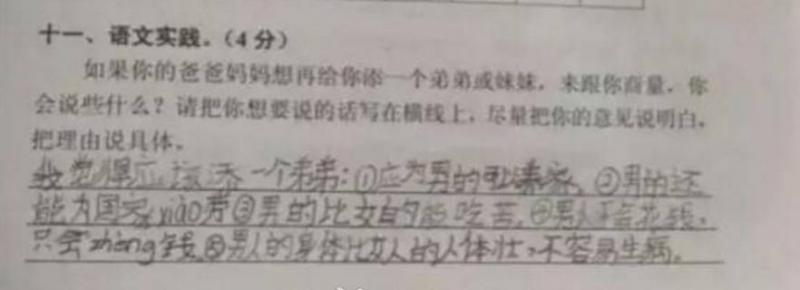 十一、语文实践。(4分)
如果你的爸爸妈妈想再给你添一个弟弟或妹妹，来跟你商量，你
会说些什么？请把你想要说的话写在横线上，尽量把你的意见说明白，
把理由说具体。
我觉得应该添一个弟弟：①应为男的可以养家，②男的还
能为国家xiào劳③男的比女的能吃苦，④男人不会花钱，
只会zhèng钱，⑤男人的身体比女人的人体壮，不容易生病。